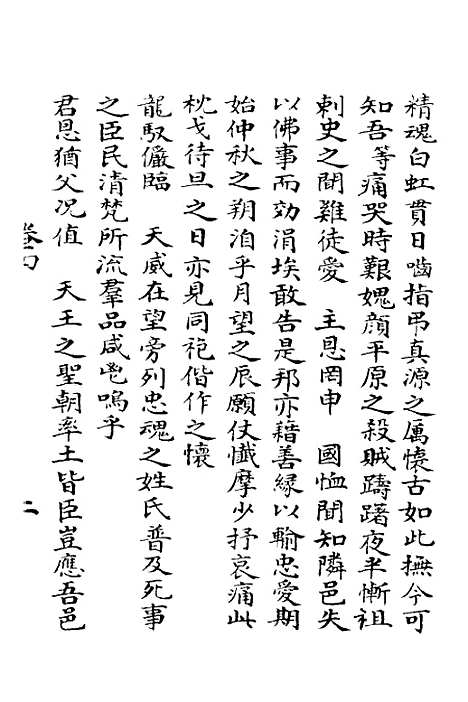 精魂白虹貫日嚙指弔真源之厲懷古如此撫今可
知吾等痛哭時艱媿顔平原之殺賊躊躇夜半慚祖
刺史之聞雞徒愛　主恩罔申　國恤聞知隣邑失
以佛事而効涓埃敢告是邦亦藉善緣以輸忠愛期
始仲秋之朔洎乎月望之辰願仗懺摩少抒哀痛此
枕戈待旦之日亦見同袍偕作之懷
龍馭儼臨　天威在望旁列忠魂之姓氏普及死事
之臣民清梵所流羣品咸鬯嗚乎
君恩猶父况值　天王之聖朝率土皆臣豈應吾邑
二